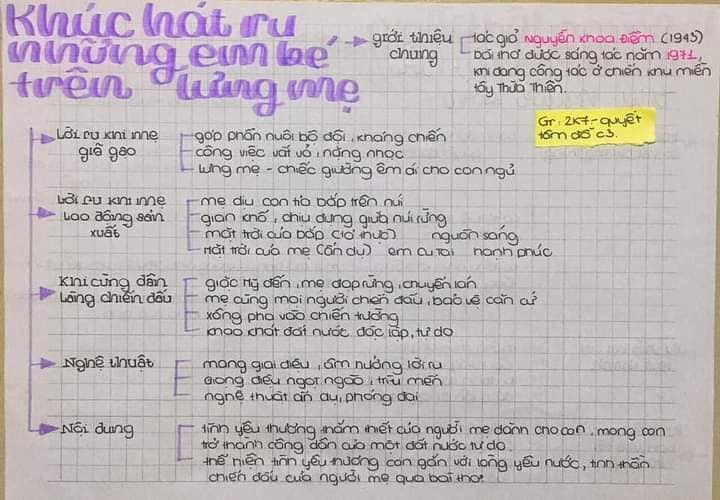 Khúc hát ru
những em bé
trên lưng mẹ
giới thiệu
chung
tác giả Nguyễn Khoa Điềm (1945)
bài thơ được sáng tác năm 1971,
khi đang công tác ở chiến khu miền
tây Thừa Thiên.
Gr: 2K7-quyết
tâm đỗ c3.
Lời ru khi mẹ
giã gạo
góp phần nuôi bộ đội, kháng chiến
công việc vất vả, nặng nhọc
lưng mẹ - chiếc giường êm ái cho con ngủ
Lời ru khi mẹ
lao động sản
xuất
mẹ dịu con tỉa bắp trên núi
gian khổ, chịu đựng giữa núi rừng
mặt trời của bắp (tả thực) nguồn sống
Mặt trời của mẹ (ẩn dụ) em cu tai hạnh phúc
Khi cùng dân
làng chiến đấu
giặc Mỹ đến, mẹ đạp rừng, chuyển lán
mẹ cùng mọi người chiến đấu, bảo vệ căn cứ
xông pha vào chiến trường
khao khát đất nước độc lập, tự do
Nghệ thuật
mang giai điệu, âm hưởng lời ru
Giọng điệu ngọt ngào, trìu mến
nghệ thuật ẩn dụ, phóng đại
Nội dung
tình yêu thương thắm thiết của người mẹ dành cho con, mong con
trở thành công dân của một đất nước tự do.
thể hiện tình yêu thương con gắn với lòng yêu nước, tinh thần
chiến đấu của người mẹ qua bài thơ.